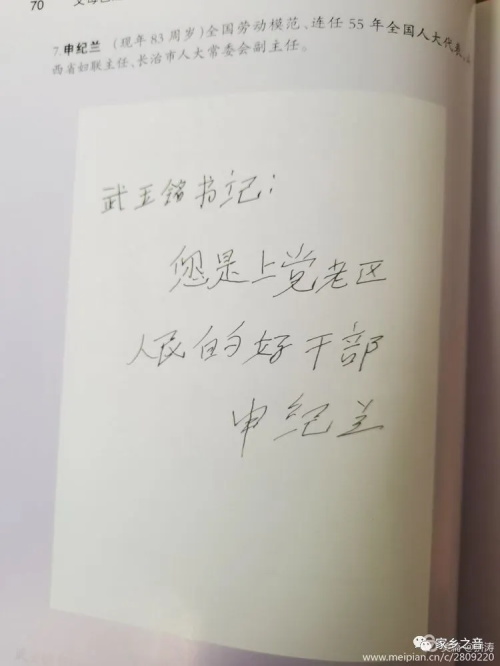 70
7.申纪兰 (现年 83 周岁)全国劳动模范、连任 55 年全国人大代表、
西省妇联主任、长治市人大常委会副主任。
武玉铭书记:
您是上党老区
人民的好干部
申纪兰
家乡之音
www.meipian.cn/c/2809220